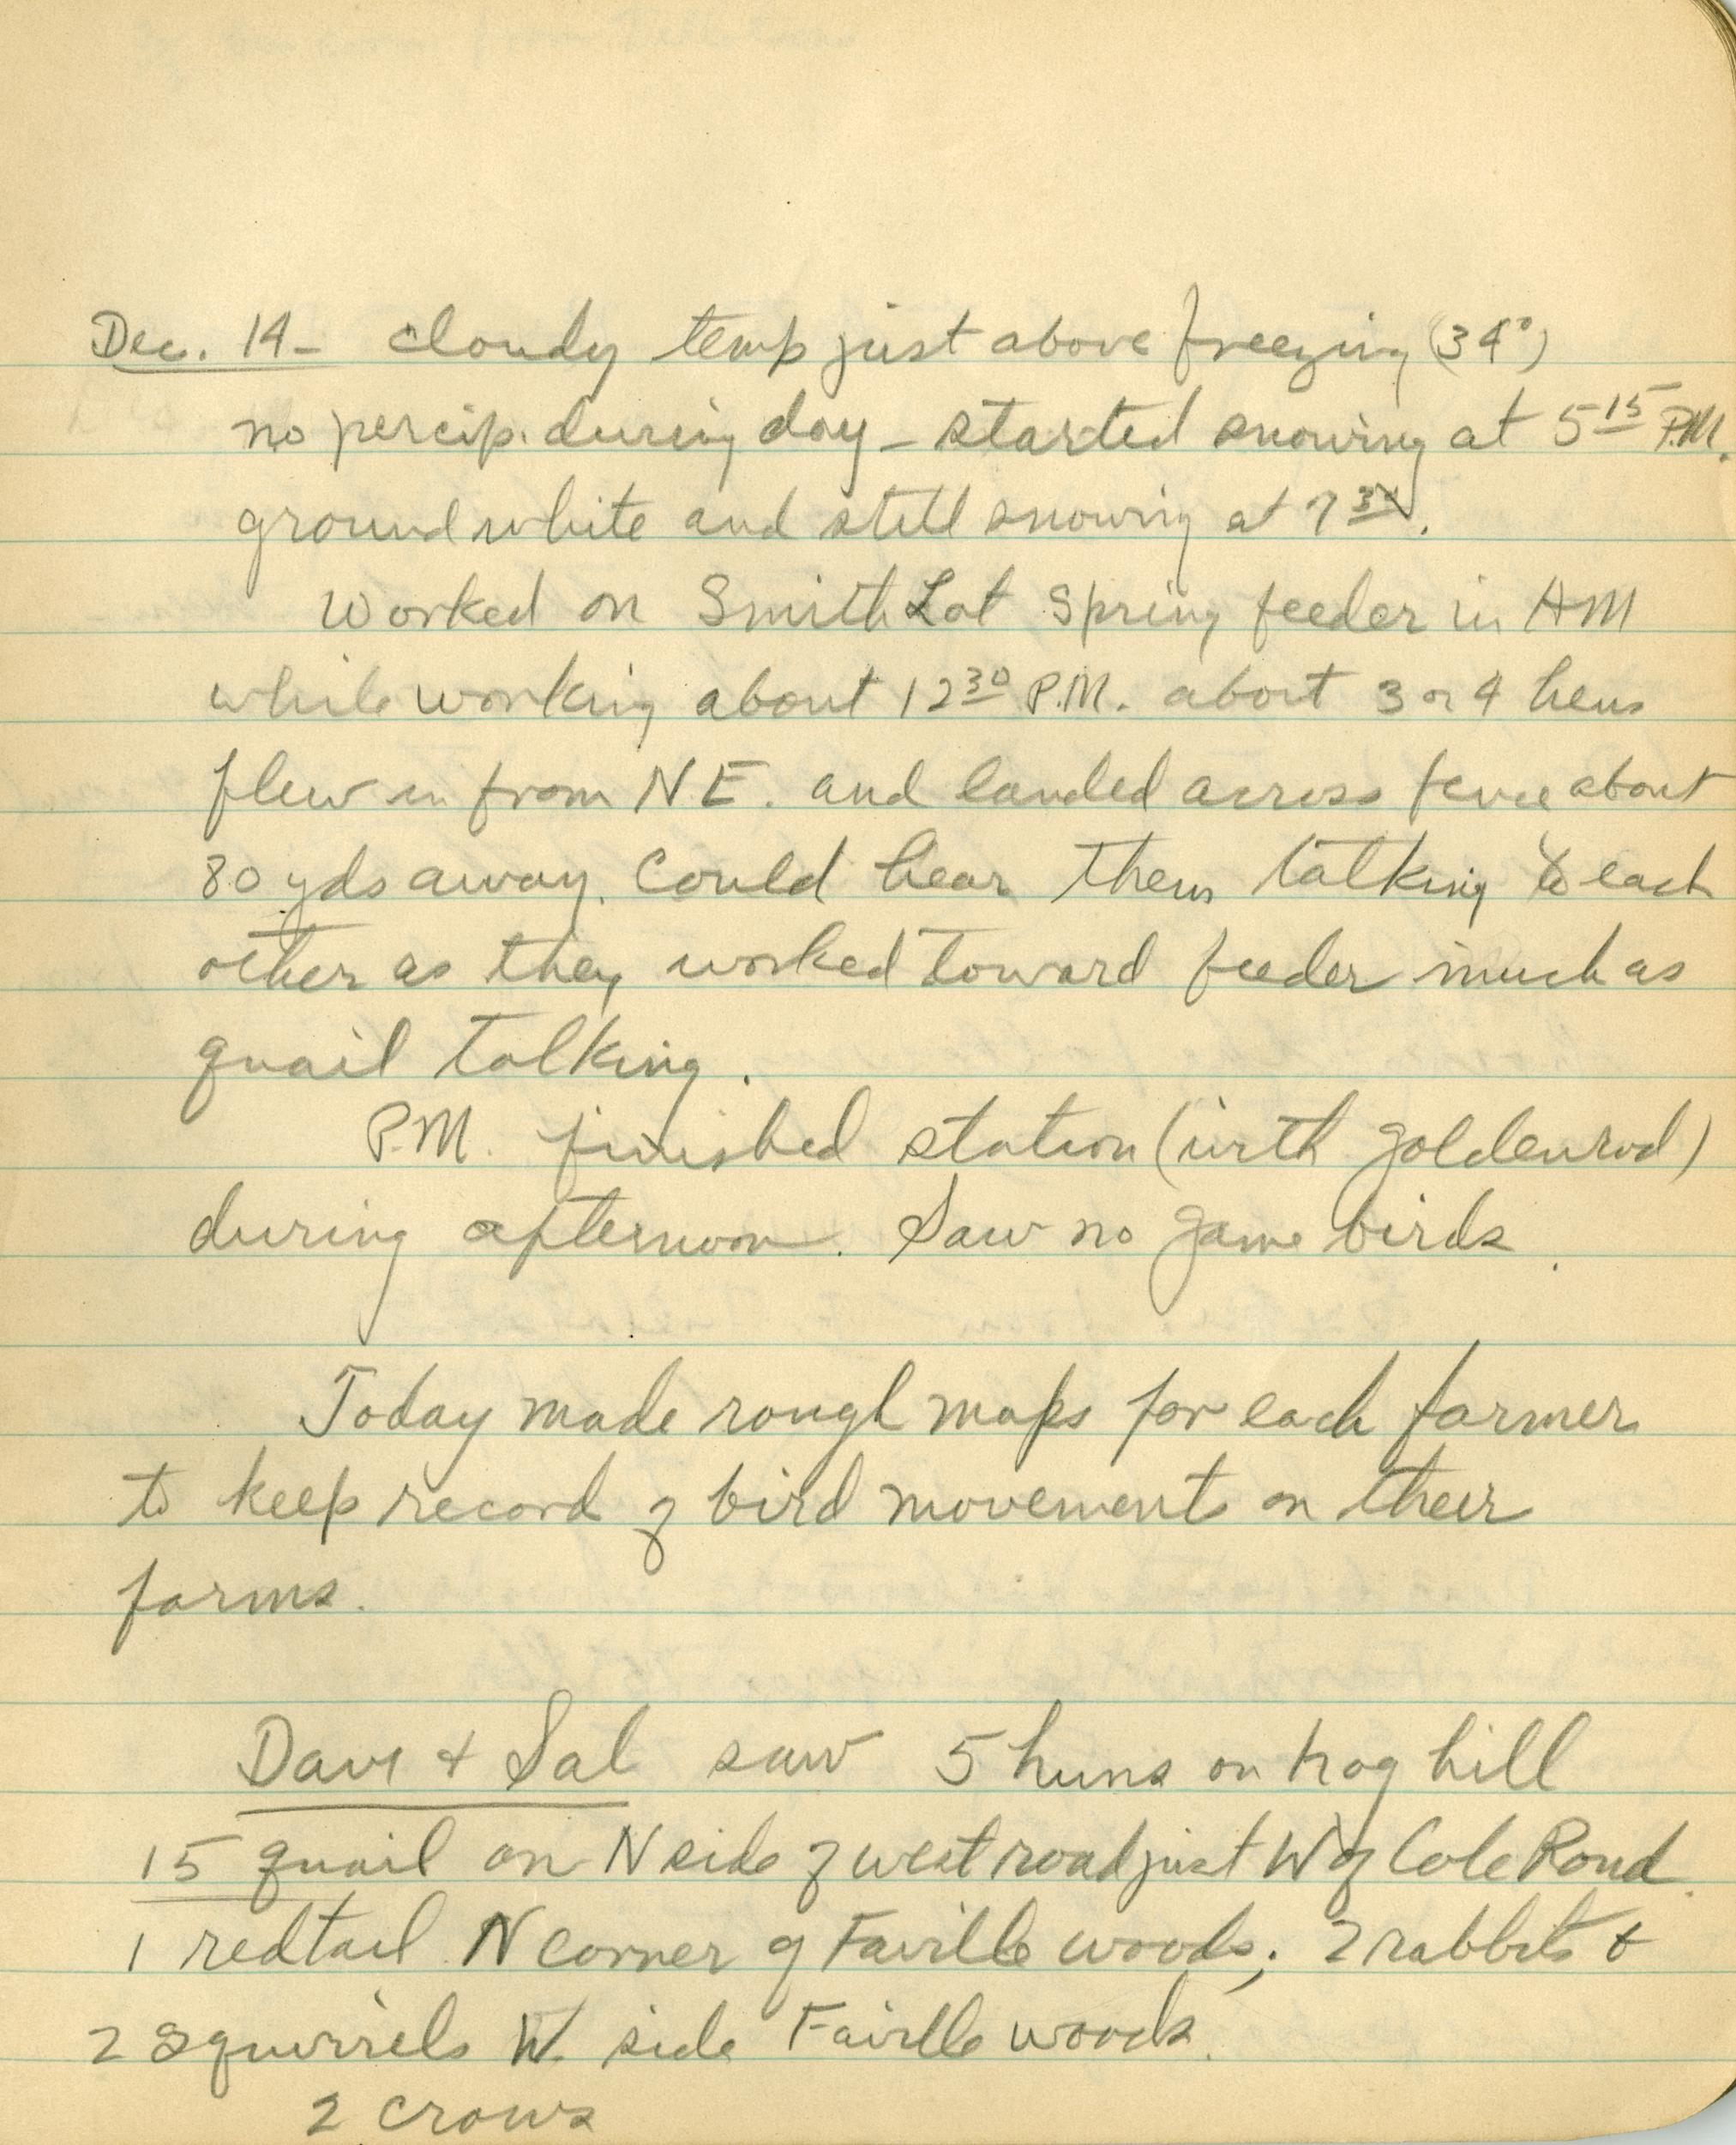 Dec. 14 - cloudy temp just above freezing (34°)
no percip. during day - started snowing at 5 15 P.M.
ground white and still snowing at 7 30.
Worked on Smith Lot Spring feeder in AM
while working about 12 30 P.M. about 3 or 4 hens
flew in from N.E. and landed across fence about
80 yds away. Could hear them talking to each
other as they worked toward feeder much as
quail talking.
P.M. finished station (with goldenrod)
during afternoon. Saw no game birds.
Today made rough maps for each farmer
to keep record of bird movements on their
farms.
Dave & Sal saw 5 huns on hog hill
15 quail on N side of west road just W of Cole Pond.
1 redtail N corner of Faville woods; 2 rabbits &
2 squirrels W. side Faville woods.
2 crows